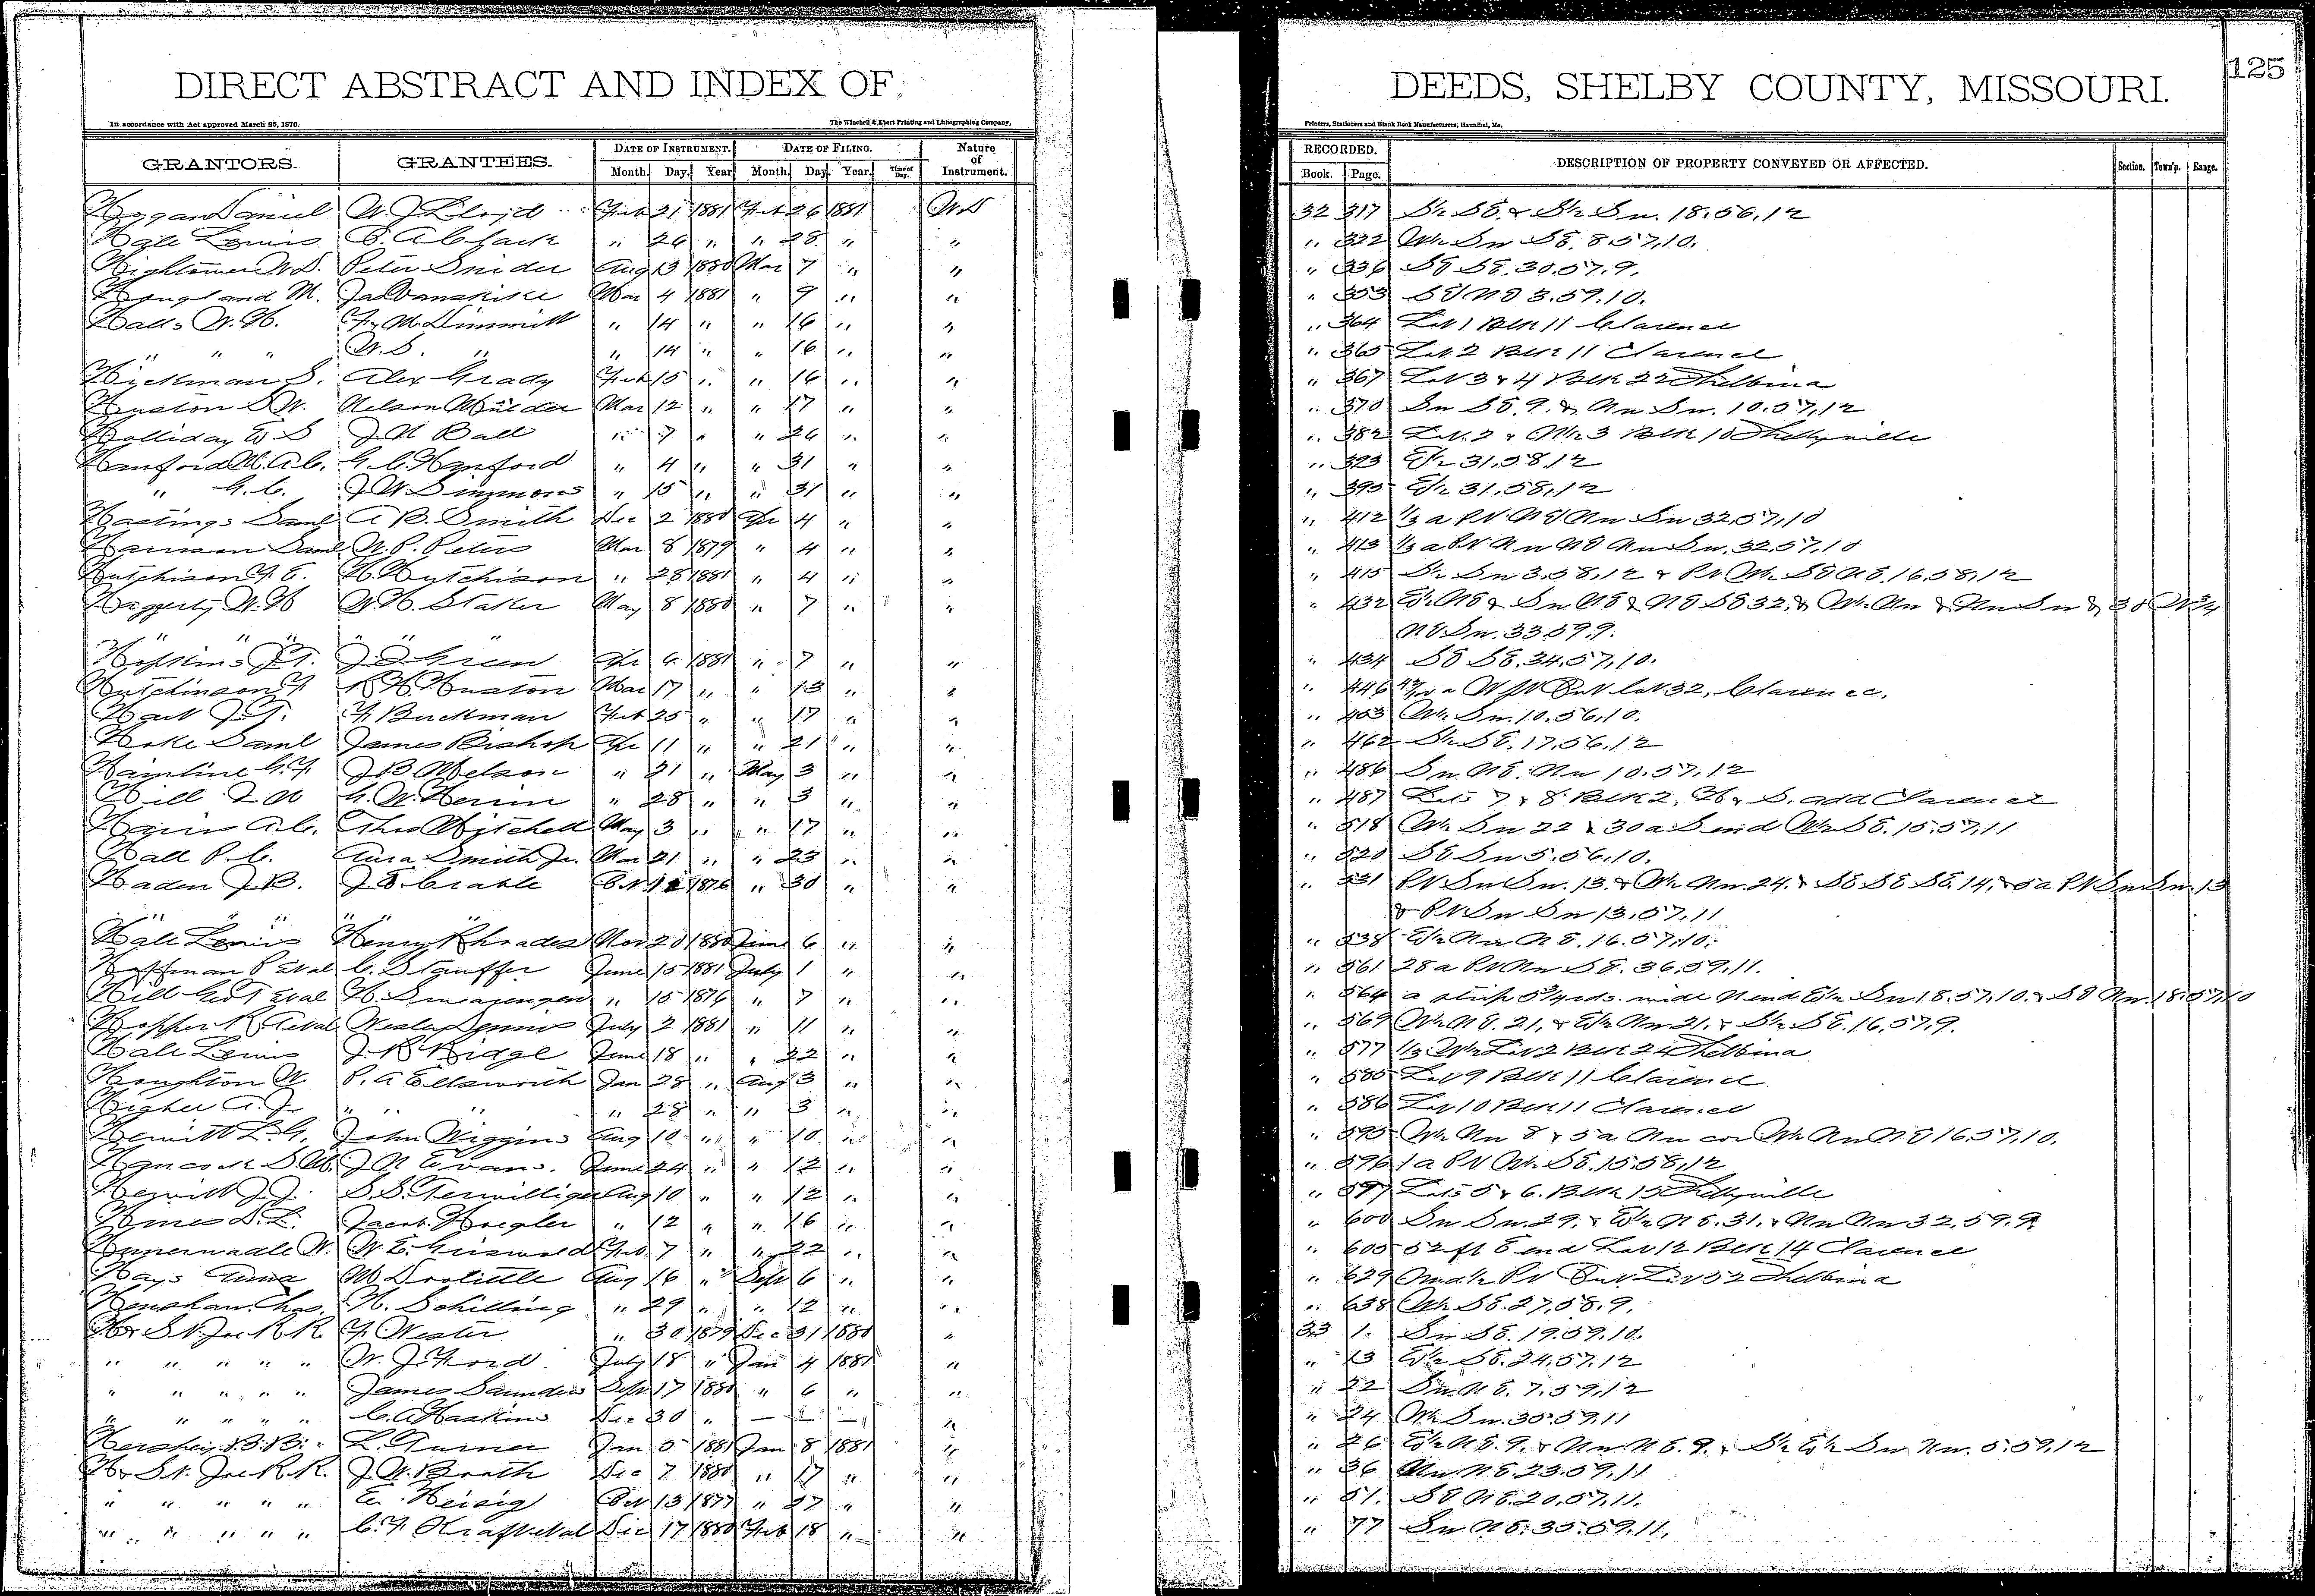 125
DIRECT ABSTRACT AND INDEX OF DEEDS, SHELBY COUNTY, MISSOURI.
In accordance with Act approved March 25, 1870. The Winchell & Ebert Printing and Lithographing Company, Printers, Stationers and Blank Book Manufacturers, Hannibal, Mo.
GRANTORS. GRANTEES. DATE OF INSTRUMENT. DATE OF FILING. Nature of Instrument. RECORDED. DESCRIPTION OF PROPERTY CONVEYED OR AFFECTED. Section. Town'p. Range.
Month. Day. Year Month. Day. Year. Time of Day. Book. Page.
Hogan Daniel W. J. Lloyd Feb 21 1881 Feb 26 1881 WD 32 317 S½ SE. & S½ SW. 18.56.12
Hale Lewis " 26 " " 28 " " " 322 W½ SW SE. 8.57.10.
Hightower W.D. Peter Snider Aug 13 1880 Mar 7 " " " 336 SE SE. 30.57.9.
Hougland M. Jas Vanskike Mar 4 1881 " 9 " " " 353 SE NE 3.59.10.
Halls W. H. F. M. Dimmitt " 14 " " 16 " " " 364 Lot 1 Blk 11 Clarence
" " " W. S. " " 14 " " 16 " " " 365 Lot 2 Blk 11 Clarence
Hickman S. Alex Grady Feb 15 " " 16 " " " 367 Lot 3 & 4 Blk 22 Shelbina
Huston S W. Nelson Mar 12 " " 17 " " " 370 SW SE. 9. & NW SW. 10.57.12
Holliday E S J. N Ball " 7 " " 26 " " " 382 Lot. 2 & W½ 3 Blk 10 Shelbyville
Hanford M. A. C. G. C. Hanford " 4 " " 31 " " " 393 E½ 31.58.12
" G. C. J. W Simmons " 15 " " 31 " " " 395 E½ 31.58.12
Hastings Saml A B. Smith Dec 2 1880 Apr 4 " " " 412 ⅓ a Pt NE NW SW 32.57.10
Harrison Saml W. P. Peters Mar 8 1879 " 4 " " " 413 ⅓ a Pt NW NE NW SW. 32.57.10
Hutchison F. E. H. Hutchison " 28 1881 " 4 " " " 415 S½ SW 3.58.12 & Pt W½ SE NE. 16.58.12
Haggerty W. H W. H. Staker May 8 1880 " 7 " " " 432 E½ NE & SW NE & NE SE 32. & W½ NW & NW SW &
" " " " " " NE SW. 33.59.9.
Hopkins J T. J. D. Green Apr 6 1881 " 7 " " " 434 SE SE. 34.57.10.
Hutchinson F. R H. Huston Mar 17 " " 13 " " " 446 Lot 32, Clarence.
Hart J. T. F. Buckman Feb 25 " " 17 " " " 453 W½ SW. 10.56.10.
Hoke Saml James Bishop Apr 11 " " 21 " " " 462 S½ SE. 17.56.12
Hamline G. F. J B Melson " 21 " May 3 " " " 486 SW NE. NW 10.57.12
Hill G. W. " 28 " " 3 " " " 487 Lots 7 & 8 Blk 2, H & S. add Clarence
Harris A. C. Thos Mitchell May 3 " " 17 " " " 518 W½ SW 22 & 30 a S end W½ SE. 15.57.11
Hall P. C. Asa Smith Jr. Mar 21 " " 23 " " " 520 SE SW 5.56.10.
Haden J. B. J. E Crable Oct 1876 " 30 " " " 531 Pt SW SW. 13. & W½ NW. 24. & SE SE SE. 14. & 5 a Pt SW SW. 13
" " " " " " & Pt SW SW 13.57.11
Hale Lewis Henry Khrades Nov 20 1880 June 6 " " " 538 E½ NW NE. 16.57.10.
Hoffman P etal C. Stauffer June 15 1881 July 1 " " " 561 28 a Pt NW SE. 36.59.11.
Hill Geo T etal H. Swearengen " 15 1876 " 7 " " " 564 a strip 5¾ rds. wide N end E½ SW 18.57.10. & SE NW. 18.57.10
Hopper R. F etal Wesley Dennis July 2 1881 " 11 " " " 569 W½ NE. 21. & E½ NW 21. & S½ SE. 16.57.9.
Hale Lewis J. R Ridge June 18 " " 22 " " " 577 ⅓ W½ Lot 2 Blk 24 Shelbina
Houghton W. P. A Ellsworth Jan 28 " Aug 3 " " " 585 Lot 9 Blk 11 Clarence
Higher A. J. " " " " 28 " " 3 " " " 586 Lot 10 Blk 11 Clarence
Hewitt L. G. John Wiggins Aug 10 " " 10 " " " 595 W½ NW 8 & 5 a NW cor W½ NW NE 16.57.10.
Hancock S M. J. N Evans. June 24 " " 12 " " " 596 1 a Pt W½ SE. 15.58.12
Hewitt J. J. S. S. Terwilliger Aug 10 " " 12 " " " 597 Lots 5 & 6. Blk 15 Shelbyville
Hines D. L. Jacob Hoegler " 12 " " 16 " " " 600 SW SW. 29. & E½ NE. 31. & NW NW 32.59.9.
Hunernadle W. W E. Griswold Feb. 7 " " 22 " " " 605 52 ft E end Lot 12 Blk 14 Clarence
Hays Anna M Doolittle Aug 16 " Sept 6 " " " 629 Shelbina
Henshaw Chas. H. Schilling " 29 " " 12 " " " 638 W½ SE. 27.58.9.
H & St. Joe R R. F. Wester " 30 1879 Dec 31 1880 " 33 1. SW SE. 19.59.10.
" " " " " W. J. Ford July 18 " Jan 4 1881 " " 13 E½ SE. 24.57.12
" " " " " James Saunders Sept 17 1880 " 6 " " " 22 SW NE. 7.59.12
" " " " " C. A Haskins Dec 30 " — — — " " 24 W½ SW. 35.59.11
Hershey B. B. L. Turner Jan 5 1881 Jan 8 1881 " " 26 E½ NE. 9. & NW NE. 9. & S½ E½ SW NW. 5.59.12
H & St. Joe R R. J. W. Broth Dec 7 1880 " 17 " " " 36 NW NE. 23.59.11
" " " " " E. Heisig Oct 13 1877 " 27 " " " 51. SE NE. 20.57.11.
" " " " " C. F. Kraft etal Dec 17 1880 Feb 18 " " " 77 SW NE. 35.59.11.